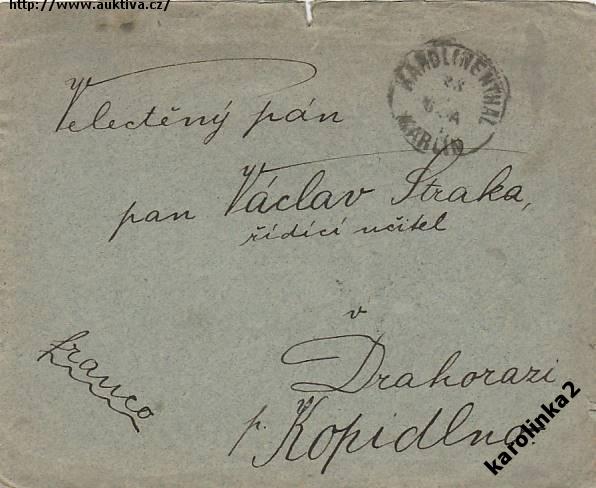 http://www.auktiva.cz/
KAROLINENTHAL
KARLÍN
Velectěný pán
pan Václav Straka,
řídící učitel
v
Drahorazi
p. Kopidlna.
franco
karolinka2